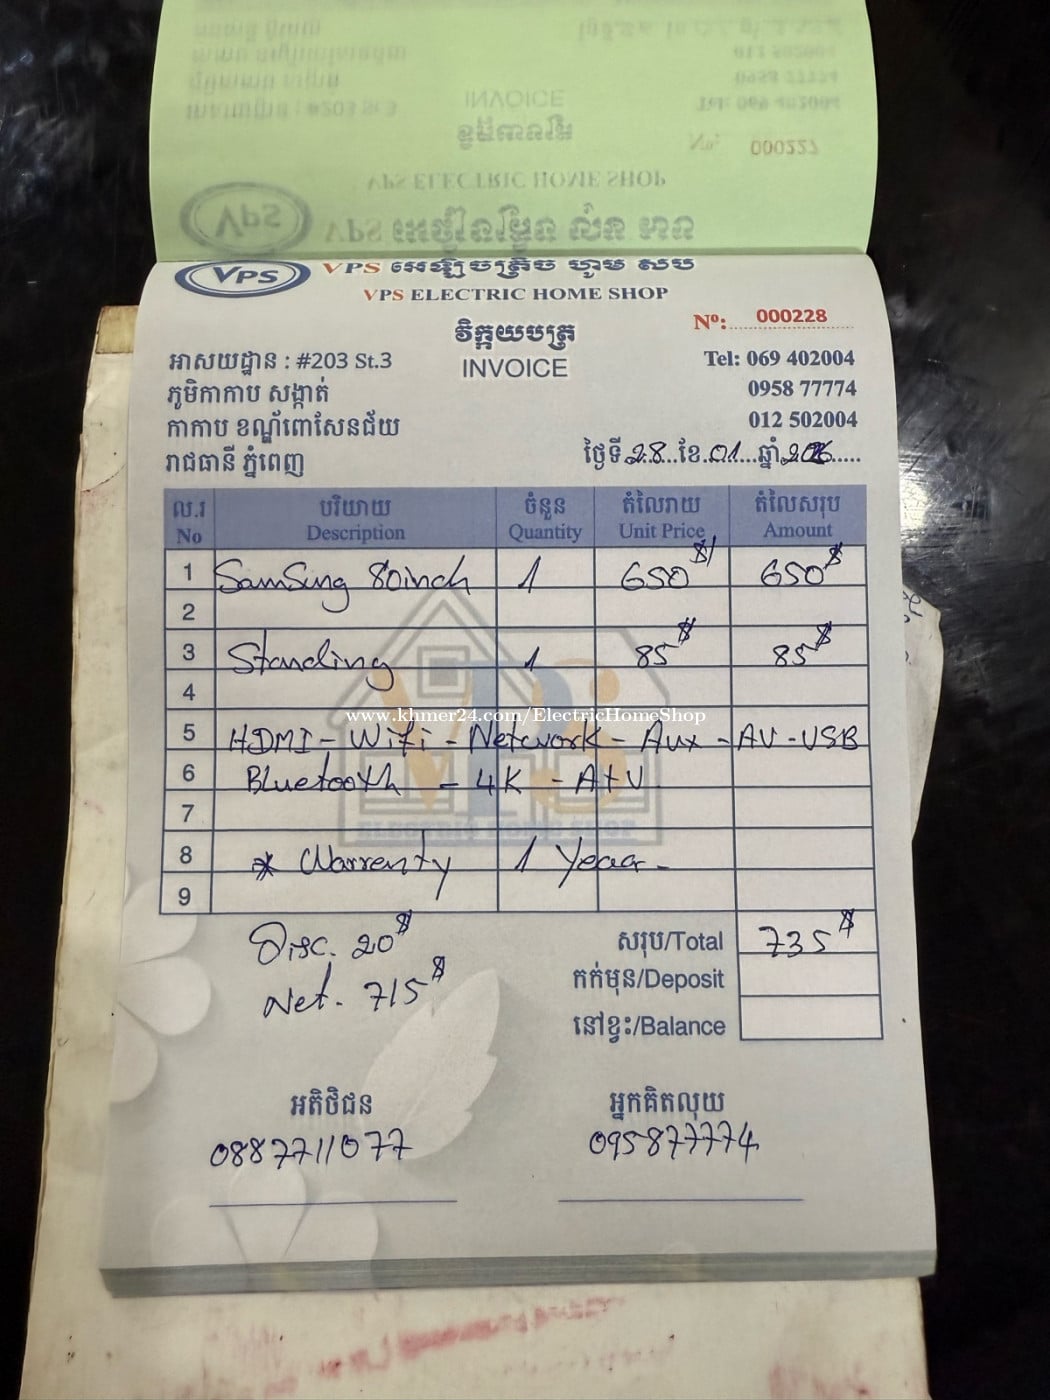 VPS
VPS អេឡិចត្រិច ហូម សប
VPS ELECTRIC HOME SHOP
វិក្កយបត្រ
INVOICE
Nº: 000228
អាសយដ្ឋាន : #203 St.3
ភូមិកាកាប សង្កាត់
កាកាប ខណ្ឌ័ពោសែនជ័យ
រាជធានី ភ្នំពេញ
Tel: 069 402004
0958 77774
012 502004
ថ្ងៃទី 28 ខែ 01 ឆ្នាំ 2026
ល.រ បរិយាយ ចំនួន តំលៃរាយ តំលៃសរុប
No Description Quantity Unit Price Amount
1 SamSung 80inch 1 650$/ 650$
2
3 Standing 1 85$ 85$
4
www.khmer24.com/ElectricHomeShop
5 HDMI - Wifi - Network - Aux - AV - USB
6 Bluetooth - 4K - AtV
7
ELECTRIC HOME SHOP
8 * Warrenty 1 Year -
9
Disc. 20$
Net. 715$
សរុប/Total 735$
កក់មុន/Deposit
នៅខ្វះ/Balance
អតិថិជន អ្នកគិតលុយ
0887711077 095877774